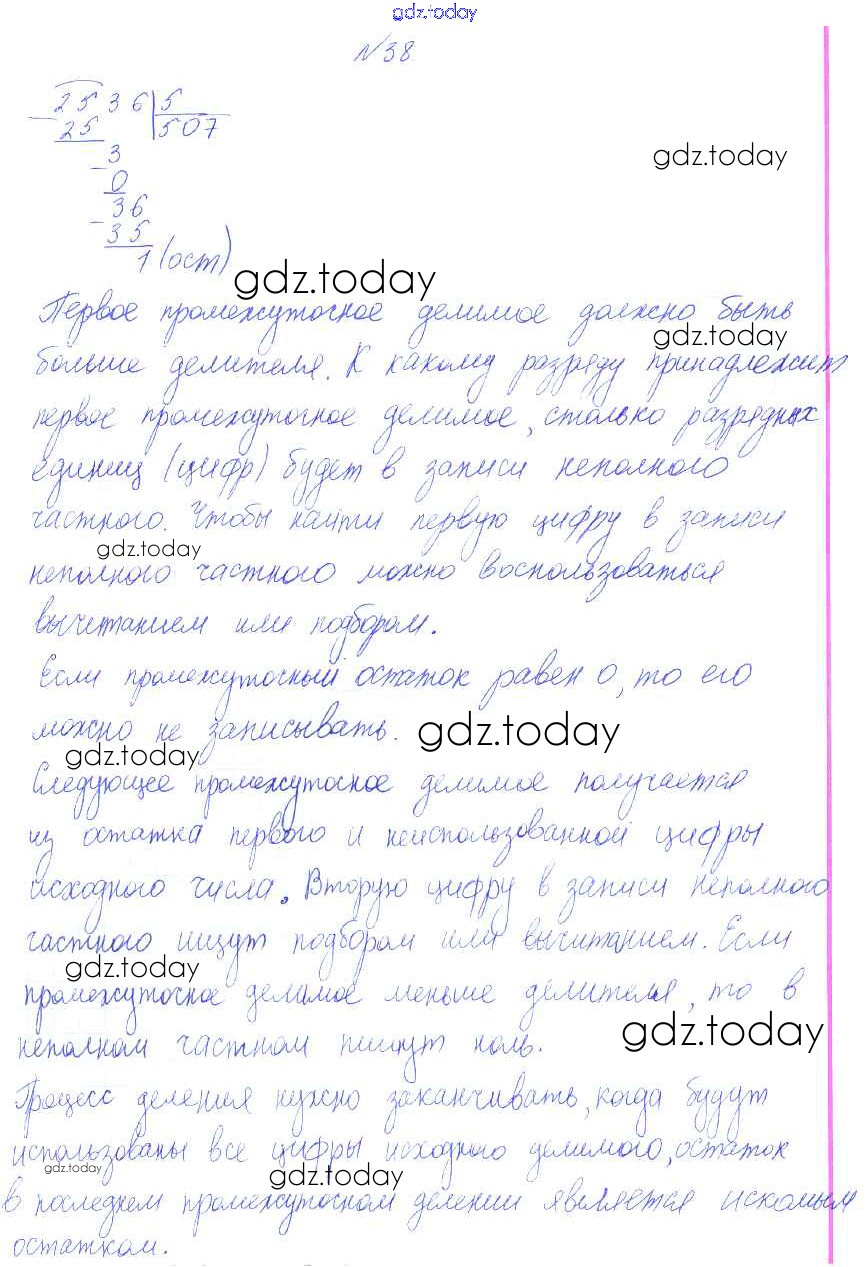 gdz.today
№38
2536|5
25 507
gdz.today
3
0
36
35
1 (ост)
gdz.today
Первое промежуточное делимое должно быть
gdz.today
больше делителя. К какому разряду принадлежит
первое промежуточное делимое, столько разрядных
единиц (цифр) будет в записи неполного
частного. Чтобы найти первую цифру в записи
gdz.today
неполного частного можно воспользоваться
вычетанием или подбором.
Если промежуточный остаток равен 0, то его
можно не записывать.
gdz.today
gdz.today
Следующее промежуточное делимое получается
из остатка первого и неиспользованной цифры
исходного числа. Вторую цифру в записи неполного
частного ищут подбором или вычитанием. Если
gdz.today
промежуточное делимое меньше делителя, то в
неполном частном пишут ноль.
gdz.today
Процесс деления нужно заканчивать, когда будут
использованы все цифры исходного делимого, остаток
gdz.today
gdz.today
в последнем промежуточном делении является искомым
остатком.